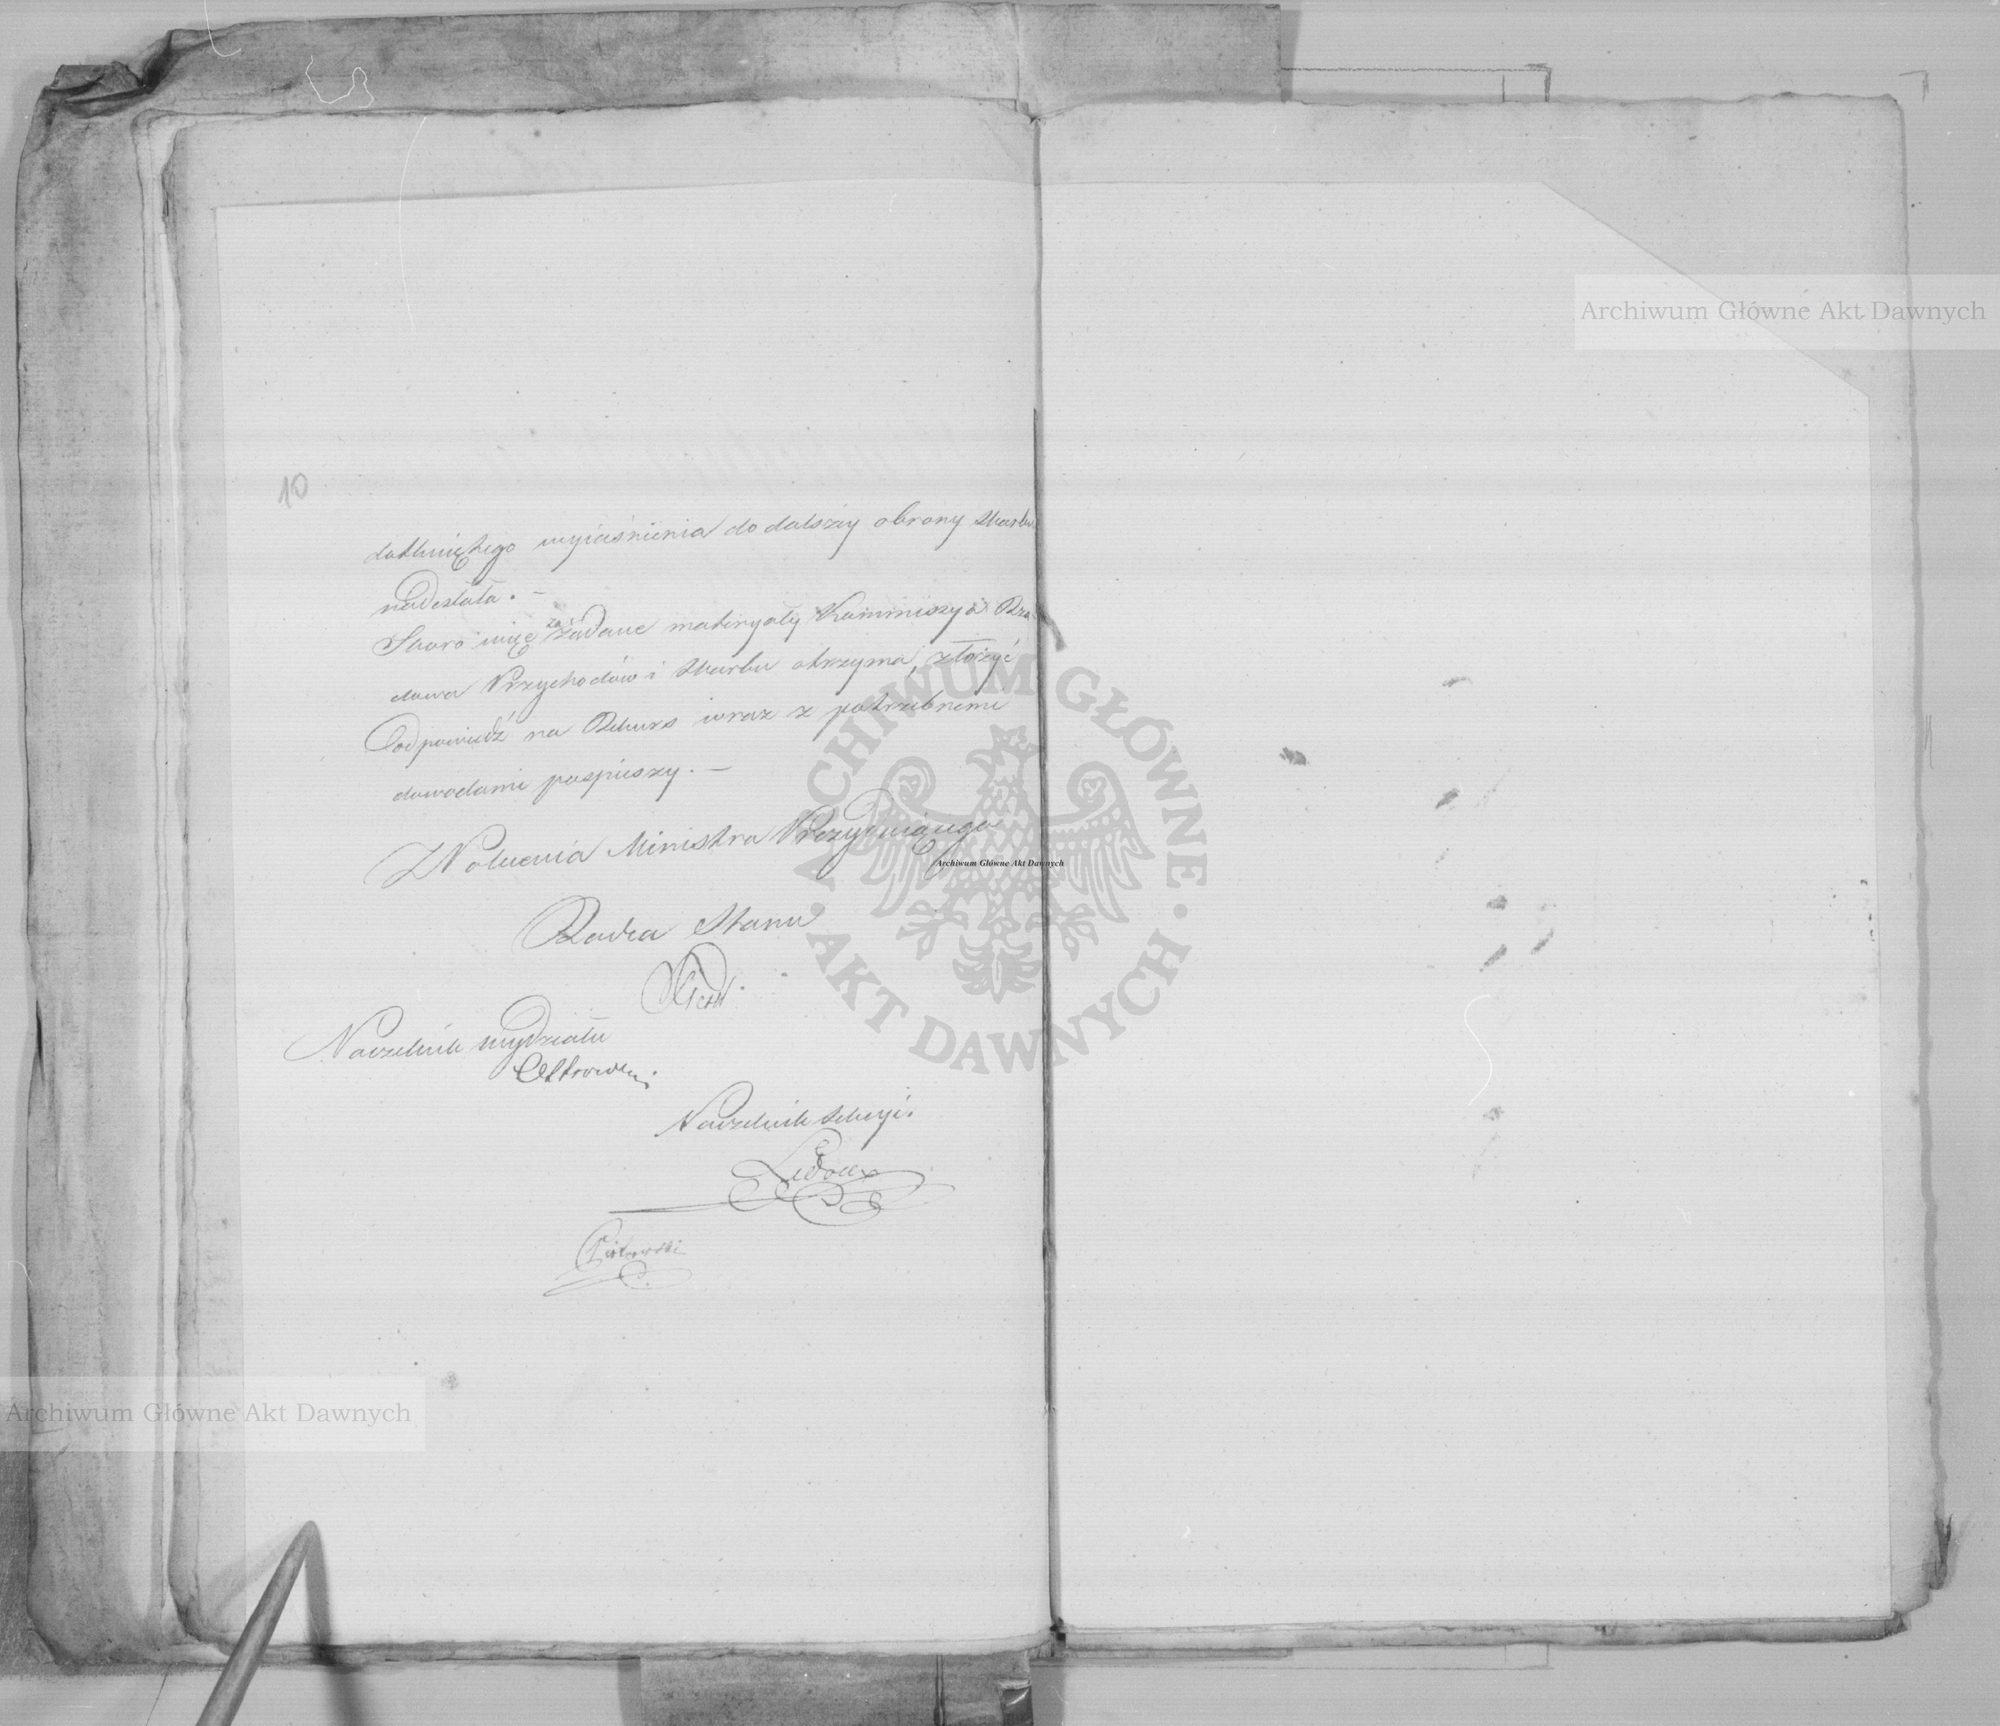 10
dotkniętego wyiaśnienia do dalszéy obrony Skarbu
nadesłała. –
Skoro więc zażądane materyały Kommissya Rzą-
dowa Przychodów i Skarbu otrzyma, złożyć
Odpowiedź na Rekurs wraz z potrzebnemi
dowodami pospieszy. –
Z Polecenia Ministra Prezyduiącego
Radca Stanu
Naczelnik Wydziału
Ostrowski
Naczelnik Sekcyi.
Piotrowski
Archiwum Główne Akt Dawnych
ARCHIWUM GŁÓWNE AKT DAWNYCH
Archiwum Główne Akt Dawnych
Archiwum Główne Akt Dawnych